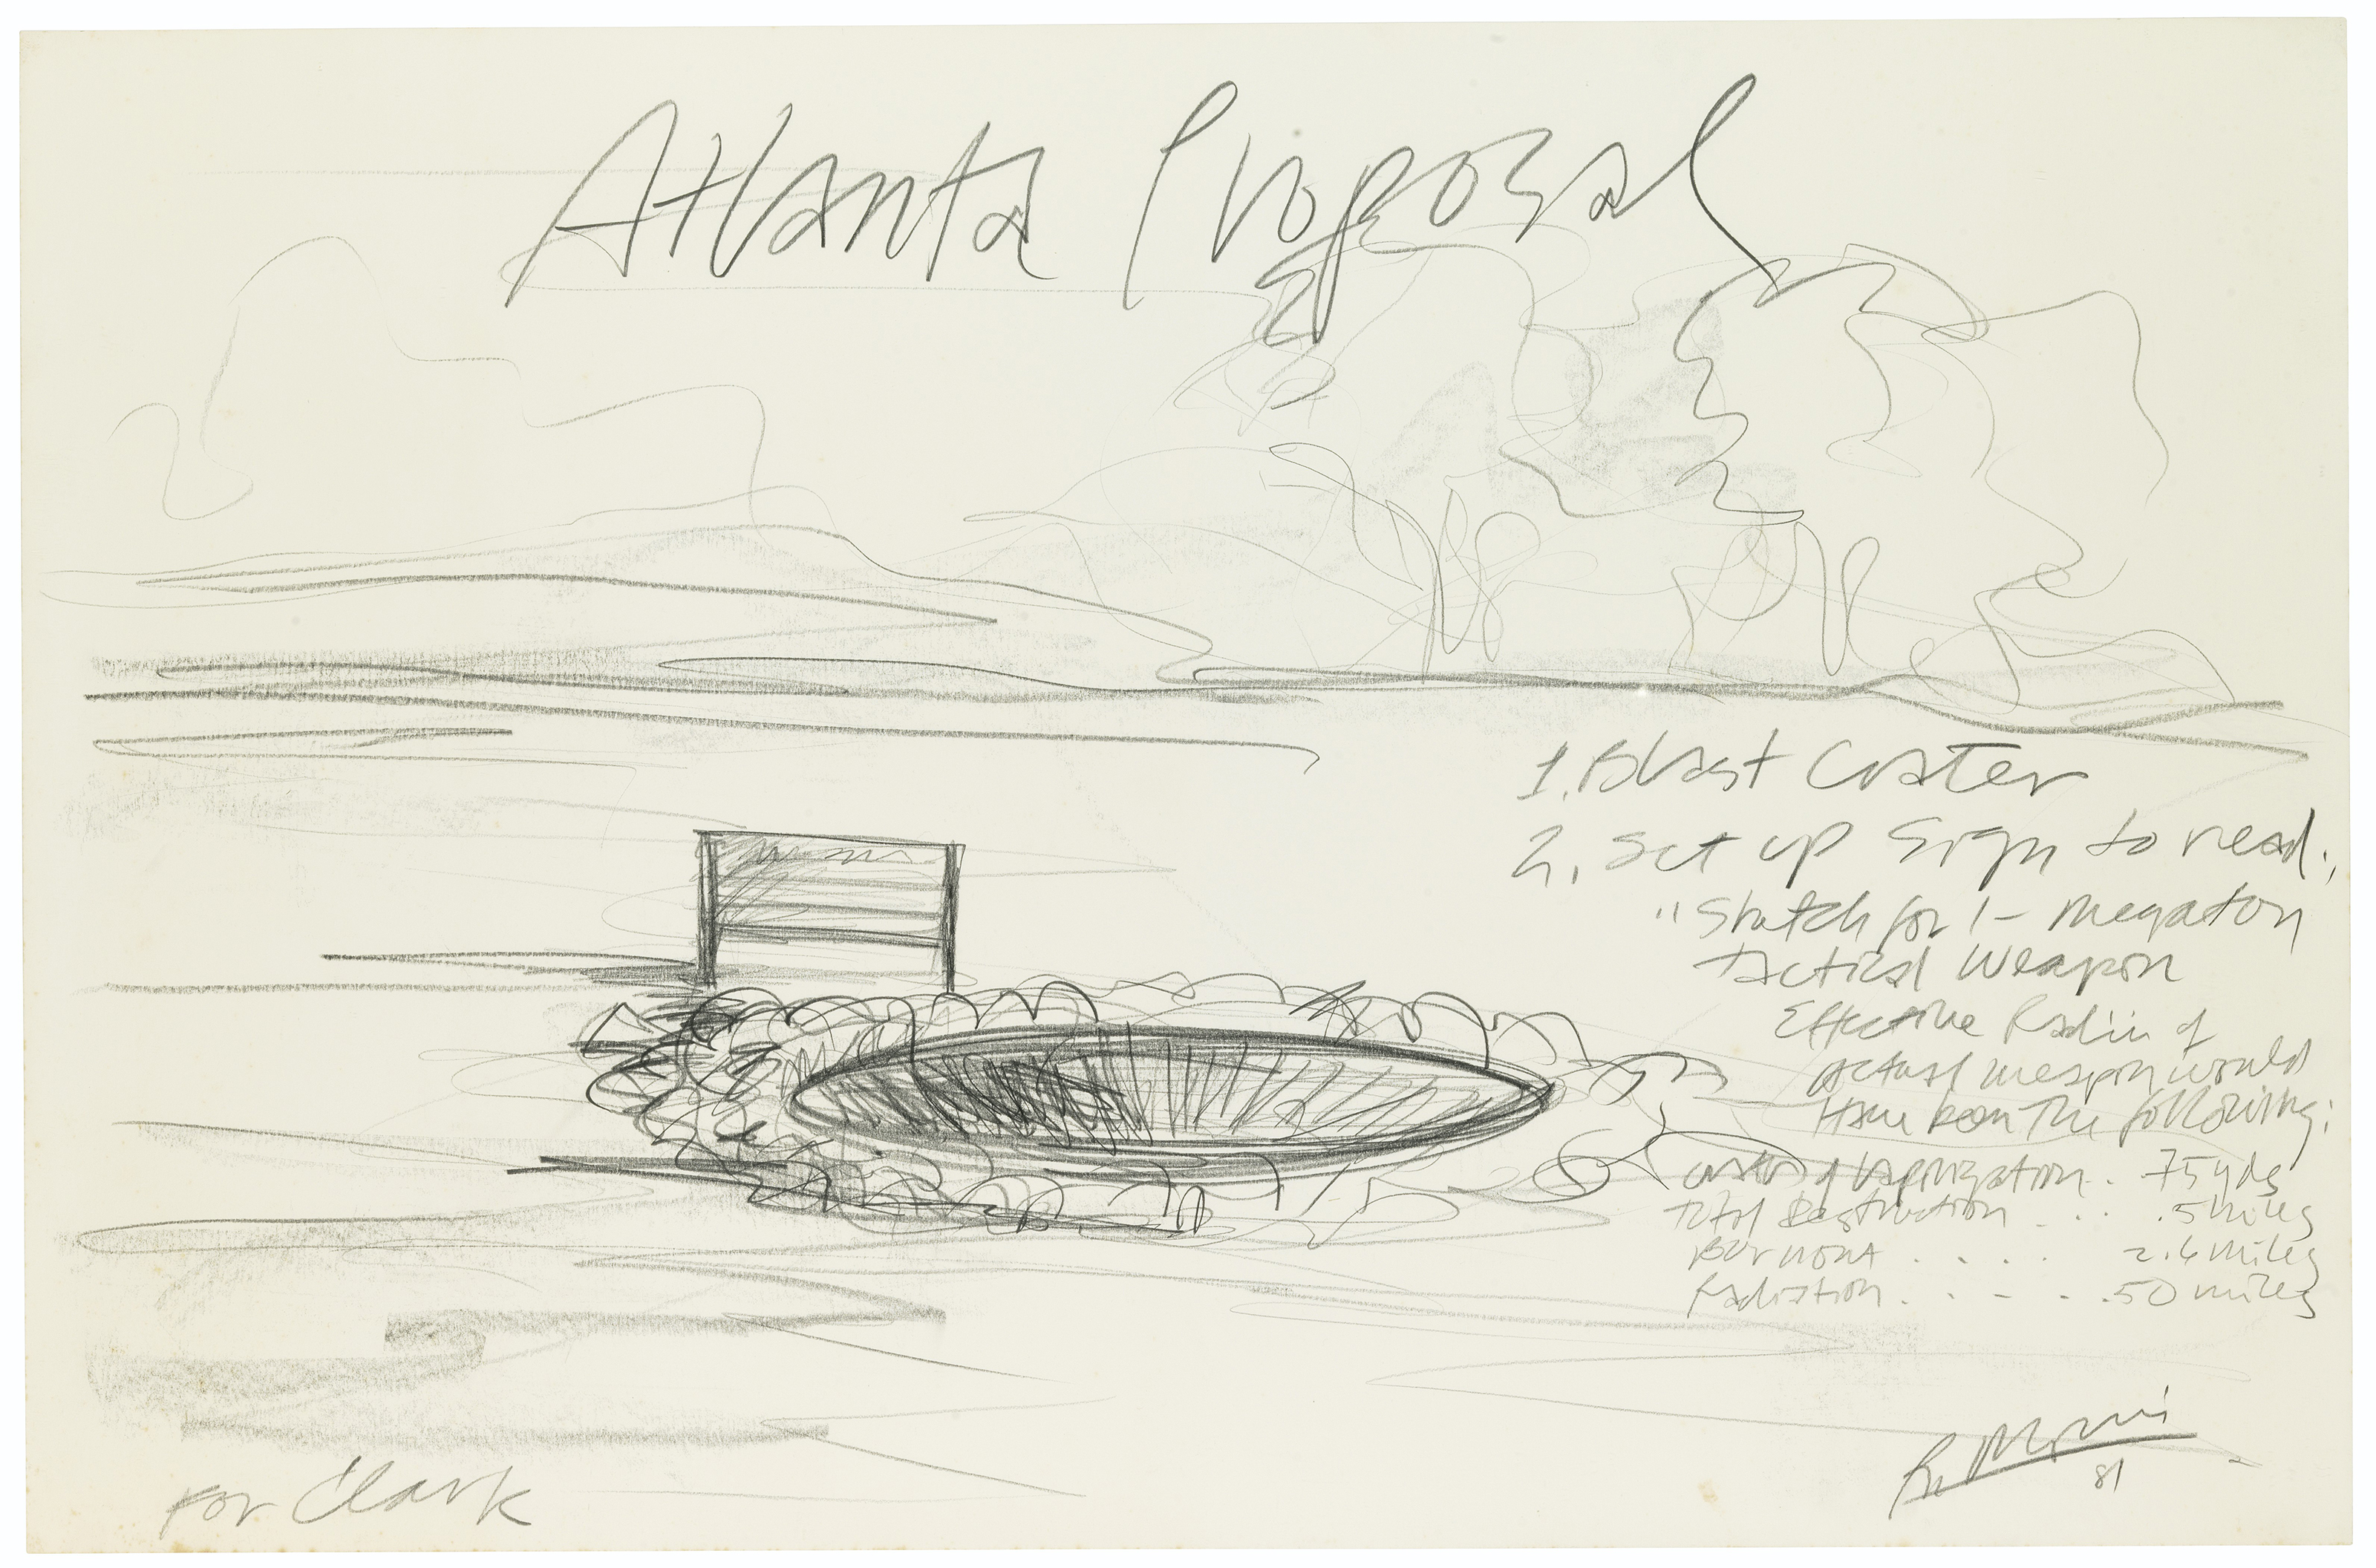 Atlanta Proposal
1. Blast Crater
2. Set up Sign to read:
"Sketch for 1- Megaton
tactical Weapon
Effective Radii of
actual weapon would
Have been The following:
of Vaporization.. 75 yds
Total Destruction ... .5 miles
Burnout .... 2.6 miles
Radiation..... 50 miles
R. Morris
81
For Clark